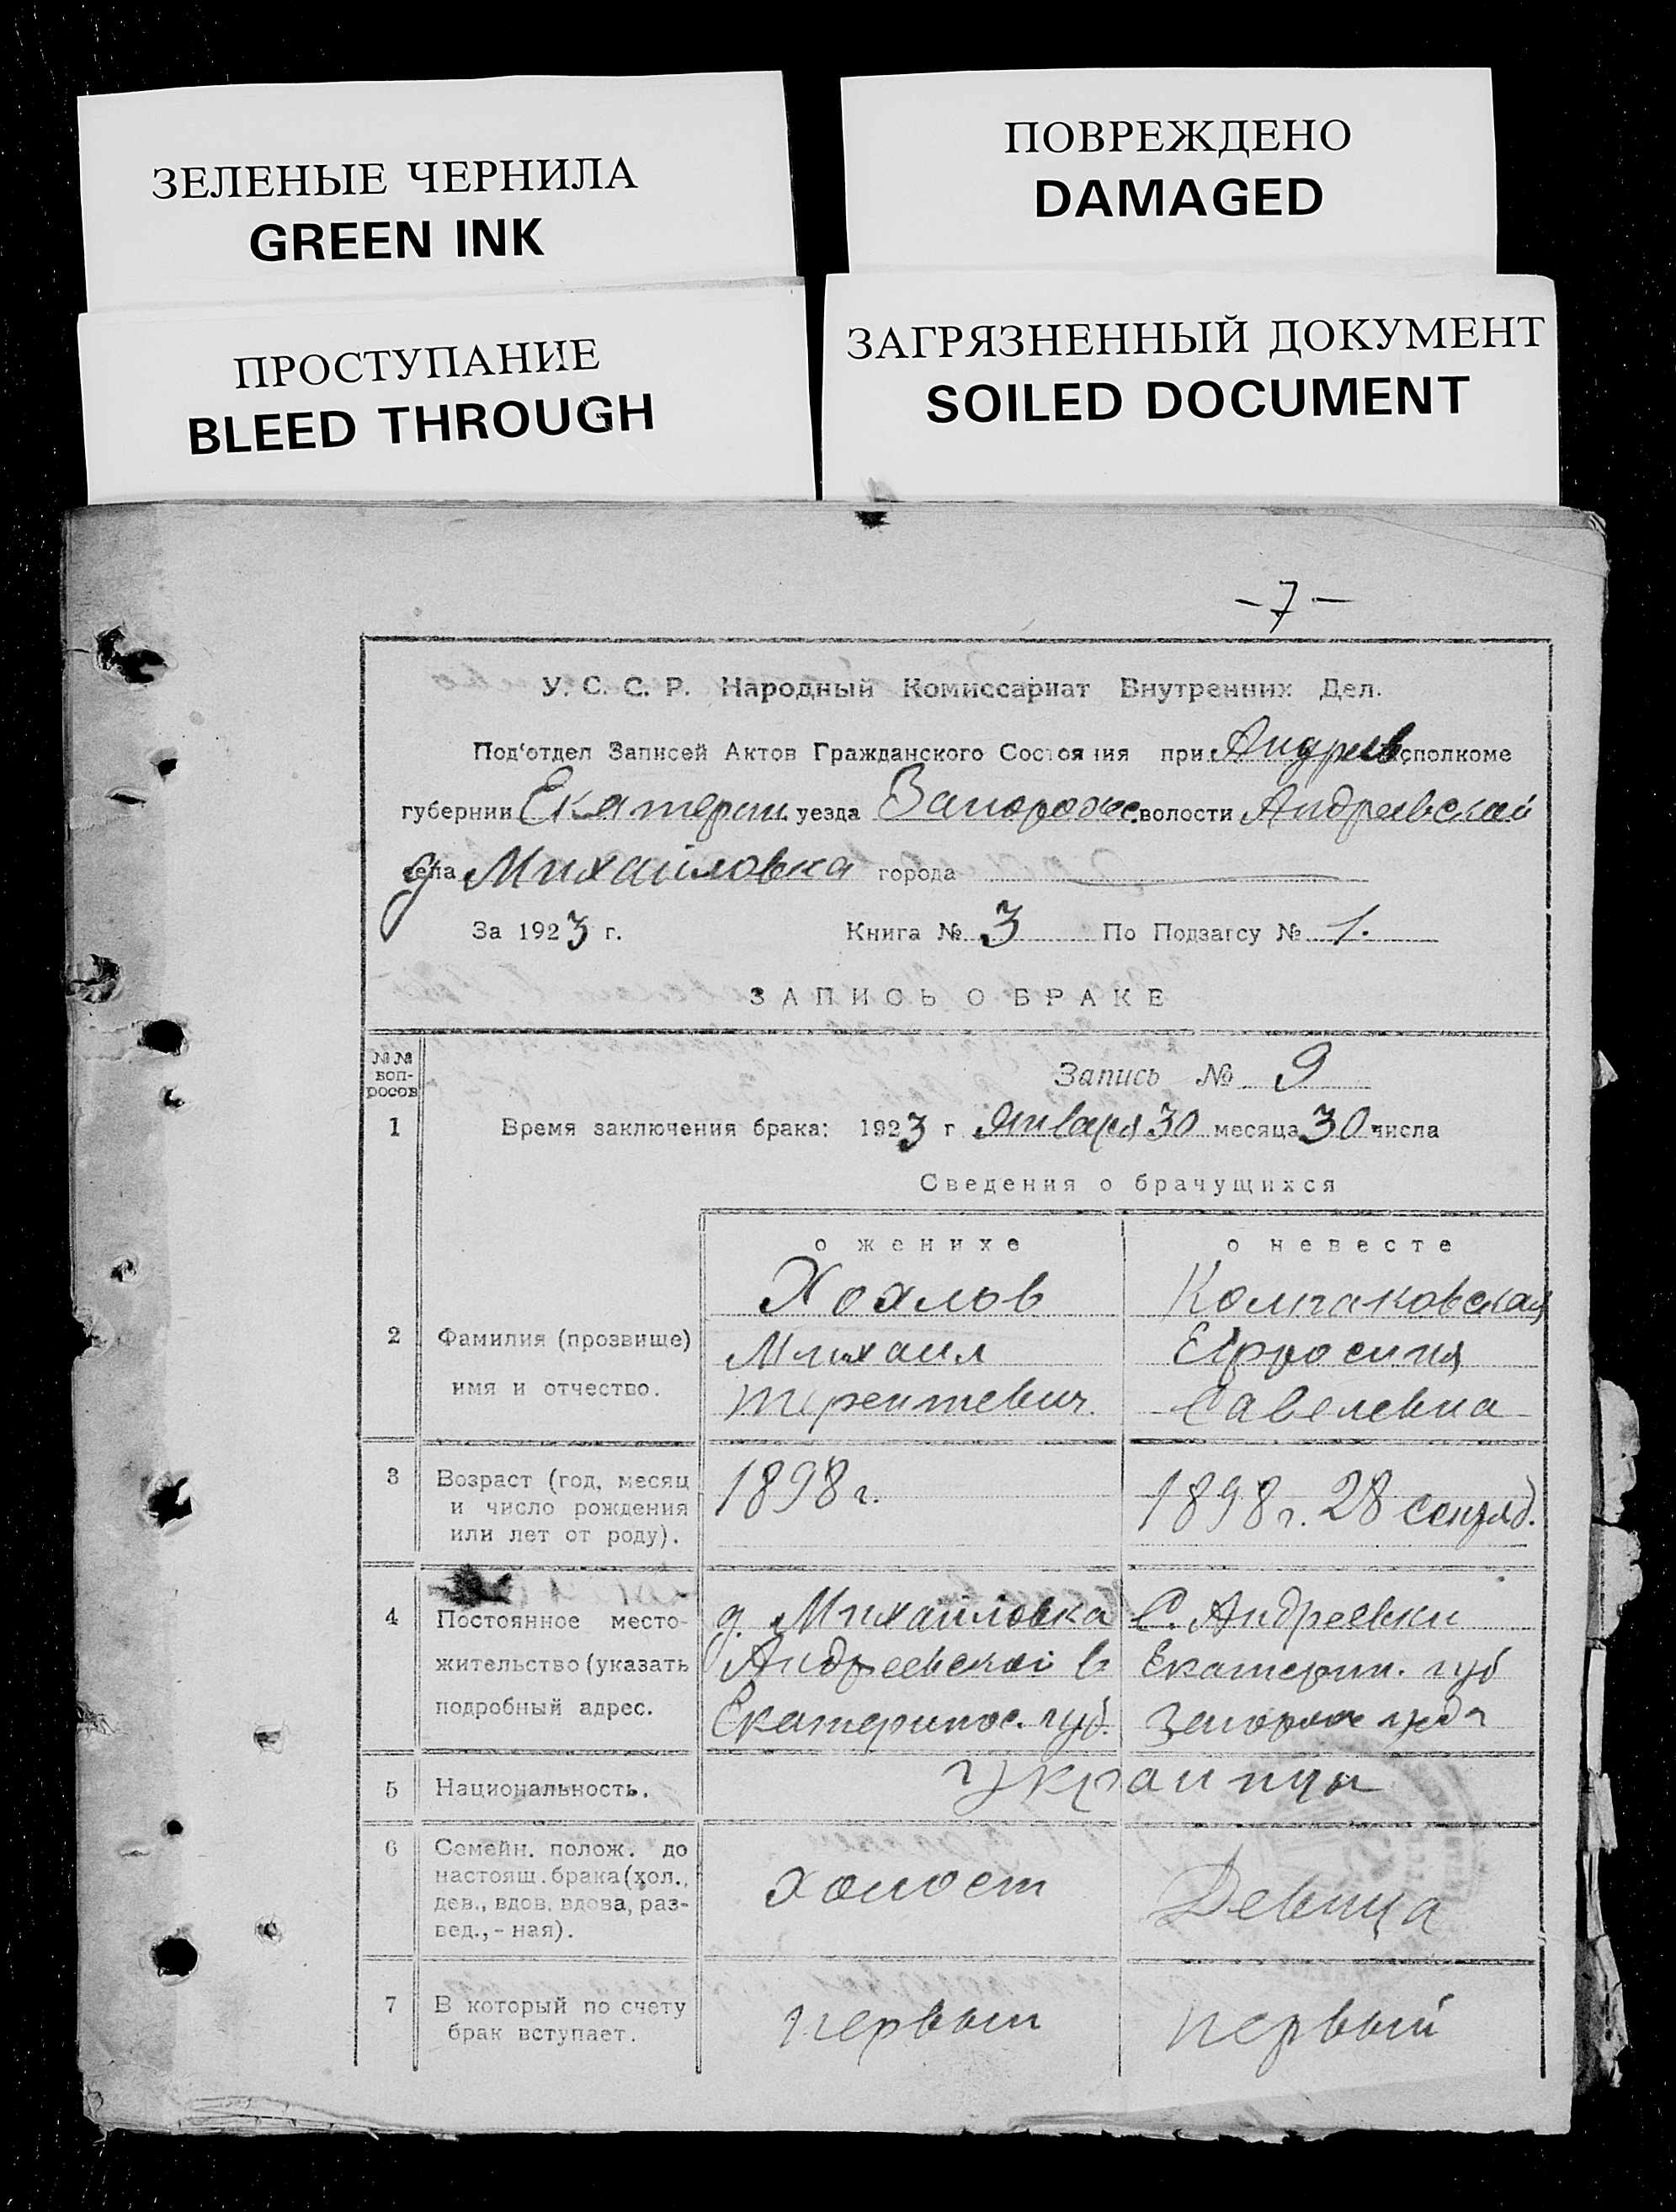 ЗЕЛЕНЫЕ ЧЕРНИЛА
GREEN INK
ПОВРЕЖДЕНО
DAMAGED
ПРОСТУПАНИЕ
BLEED THROUGH
ЗАГРЯЗНЕННЫЙ ДОКУМЕНТ
SOILED DOCUMENT
-7-
У. С. С. Р. Народный Комиссариат Внутренних Дел.
Под'отдел Записей Актов Гражданского Состояния при Андреев сполкоме
губернии Екатерин. уезда Запорожс. волости Андреевской
д. села Михайловка города
За 1923 г. Книга № 3 По Подзагсу № 1.
ЗАПИСЬ О БРАКЕ
№№ воп-росов
Запись № 9
1 Время заключения брака: 1923 г Января 30 месяца 30 числа
Сведения о брачущихся
о женихе о невесте
Хохлов Колпаковская
2 Фамилия (прозвище) Михаил Ефросиня
имя и отчество. Терентевич. Савелевна
3 Возраст (год, месяц 1898 г. 1898 г. 28 сентяб.
и число рождения
или лет от роду).
4 Постоянное место- д. Михайловка С. Андреевки
жительство (указать Андреевской в Екатерин. губ
подробный адрес. Екатеринос. губ.
5 Национальность. Украинцы
6 Семейн. полож. до
настоящ. брака (хол., холост Девица
дев., вдов, вдова, раз-
вед.,-ная).
7 В который по счету первый первый
брак вступает.